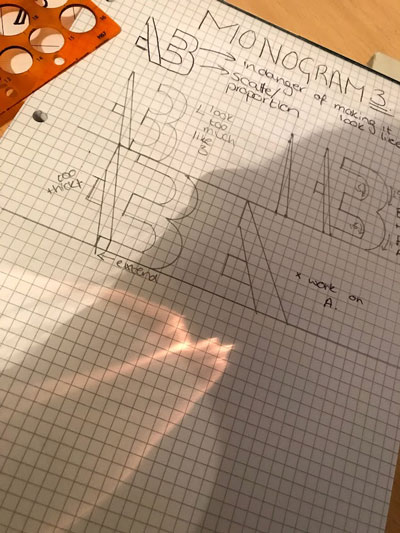 MONOGRAM 3.
AB
in danger of making it
look like
scale/
proportion
AB
look
too
much
like
B
too
thick?
AB
AB
extend
A
* work on
A